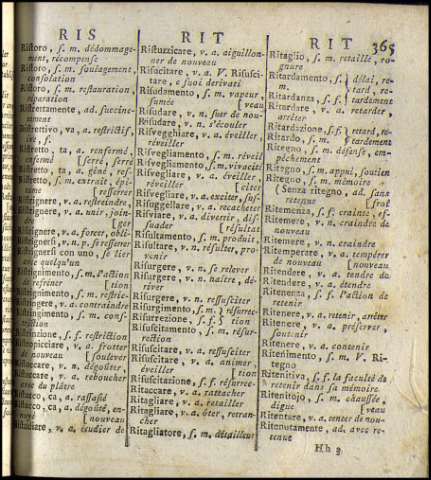 RIS RIT RIT 365
Ristoro, s. m. dédommage-
ment, récompense
Ristoro, s. m. soulagement
consolation
Ristoro, s. m. restauration,
réparation
Ristrettamente, ad. succinc-
tement
Ristrettivo, va, a. restrictif,
ive, f.
Ristretto, ta, a. renfermé,
enfermé [serré, serré
Ristretto, ta, a. gêné, res-
Ristretto, s. m. extrait, épi-
tome [resserrer
Ristrignere, v. a. restreindre,
Ristrignere, v. a. unir, join-
[ger
Ristrignere, v. a. forcer, obli-
Ristrignersi, v. n. p. se resserrer
Ristrignersi con uno, se lier
avec quelqu'un
Ristrignimento, s. m. l'action
de refréner [tion
Ristrignimento, s. m. restric-
Ristringere, v. a. contraindre
Ristringimento, s. m. cons-
triction
Ristrizione, s. f. restriction
Ristropicciare, v. a. frotter
de nouveau [soulever
Ristuccare, v. n. dégoûter,
Ristuccare, v. a. reboucher
avec du plâtre
Ristucco, ca, a. rassasié
Ristucco, ca, a. dégoûté, en-
nuyé [nouveau
Ristudiare, v. a. étudier de
Ristuzzicare, v. a. aiguillon-
ner de nouveau
Risucitare, v. a. V. Risusci-
tare, e suoi derivati
Risudamento, s. m. vapeur,
fumée [veau
Risudare, v. n. suer de nou-
Risudare, v. n. s'écouler
Risvegghiare, v. a. éveiller,
réveiller
Risvegliamento, s. m. réveil
Risvegliamento, s. m. vivacité
Risvegliare, v. a. éveiller,
réveiller [citer
Risvegliare, v. a. exciter, sus-
Risuggellare, v. a. recacheter
Risviare, v. a. divertir, dis-
suader [résultat
Risultamento, s. m. produit,
Risultare, v. n. résulter, pro-
venir
Risurgere, v. n. se relever
Risurgere, v. n. naître, dé-
river
Risurgere, v. n. ressusciter
Risurgimento, s. m. } résurrec-
Risurrezione, s. f. } tion
Risuscitamento, s. m. résur-
rection
Risuscitare, v. a. ressusciter
Risuscitare, v. a. animer,
éveiller [tion
Risuscitazione, s. f. résurrec-
Ritaccare, v. a. rattacher
Ritagliare, v. a. retailler
Ritagliare, v. a. ôter, retran-
cher
Ritagliatore, s. m. détailleur
Ritaglio, s. m. retaille, ro-
gnure
Ritardamento, s. } délai, re-
m. } tard, re-
Ritardanza, s. f. } tardement
Ritardare, v. a. retarder,
arrêter
Ritardazione, s. f. } retard, re-
Ritardo, s. m. } tardement
Ritegno, s. m. défense, em-
pêchement
Ritegno, s. m. appui, soutien
Ritegno, s. m. mémoire
(Senza ritegno, ad. sans
retenue [frol
Ritemenza, s. f. crainte, ef-
Ritemere, v. n. craindre de
nouveau
Ritemere, v. n. craindre
Ritemperare, v. a. tempérer
de nouveau [nouveau
Ritendere, v. a. tendre de
Ritendere, v. a. étendre
Ritenenza, s. f. l'action de
retenir
Ritenere, v. a. retenir, arrêter
Ritenere, v. a. préserver,
soutenir
Ritenere, v. a. contenir
Ritenimento, s. m. V. Ri-
tegno
Ritenitiva, s. f. la faculté de
retenir dans sa mémoire
Ritenitojo, s. m. chaussée,
digue [veau
Ritentare, v. a. tenter de nou-
Ritenutamente, ad. avec re-
tenue
H h 3